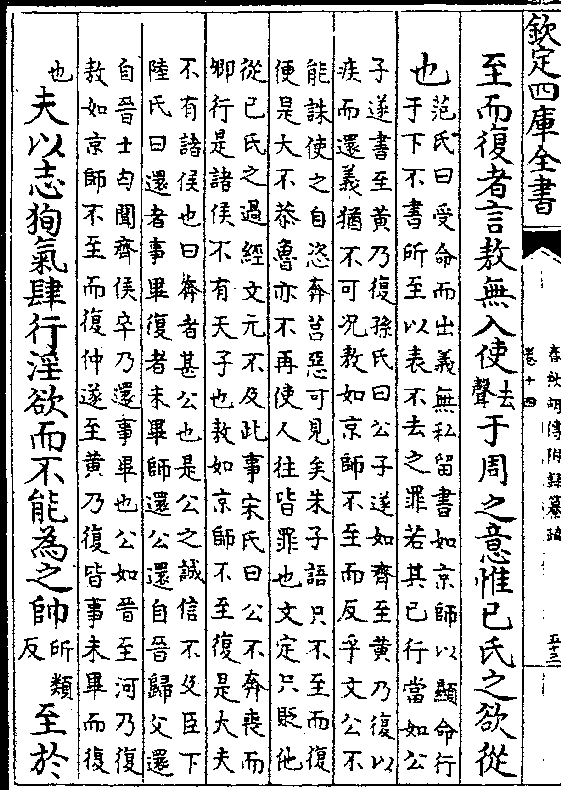 欽定四庫全書
春秋胡傳附録纂疏
卷十四
五十三
至而復者言敖無入使去聲于周之意惟已氏之欲從
也范氏曰受命而出義無私留書如京師以顯命行
于下不書所至以表不去之罪若其已行當如公
子遂書至黄乃復孫氏曰公子遂如齊至黄乃復以
疾而還義猶不可况敖如京師不至而反乎文公不
能誅使之自恣奔莒惡可見矣朱子語只不至而復
便是大不恭魯亦不再使人往皆罪也文定只貶他
從已氏之過經文元不及此事宋氏曰公不奔喪而
卿行是諸侯不有天子也敖如京師不至復是大夫
不有諸侯也曰弊者甚公也是公之誠信不及臣下
陸氏曰還者事畢復者未畢師還公還自晉歸父還
自晉士匄聞齊侯卒乃還事畢也公如晉至河乃復
敖如京師不至而復仲遂至黄乃復皆事未畢而復
也夫以志狥氣肆行淫欲而不能為之帥所類反至於